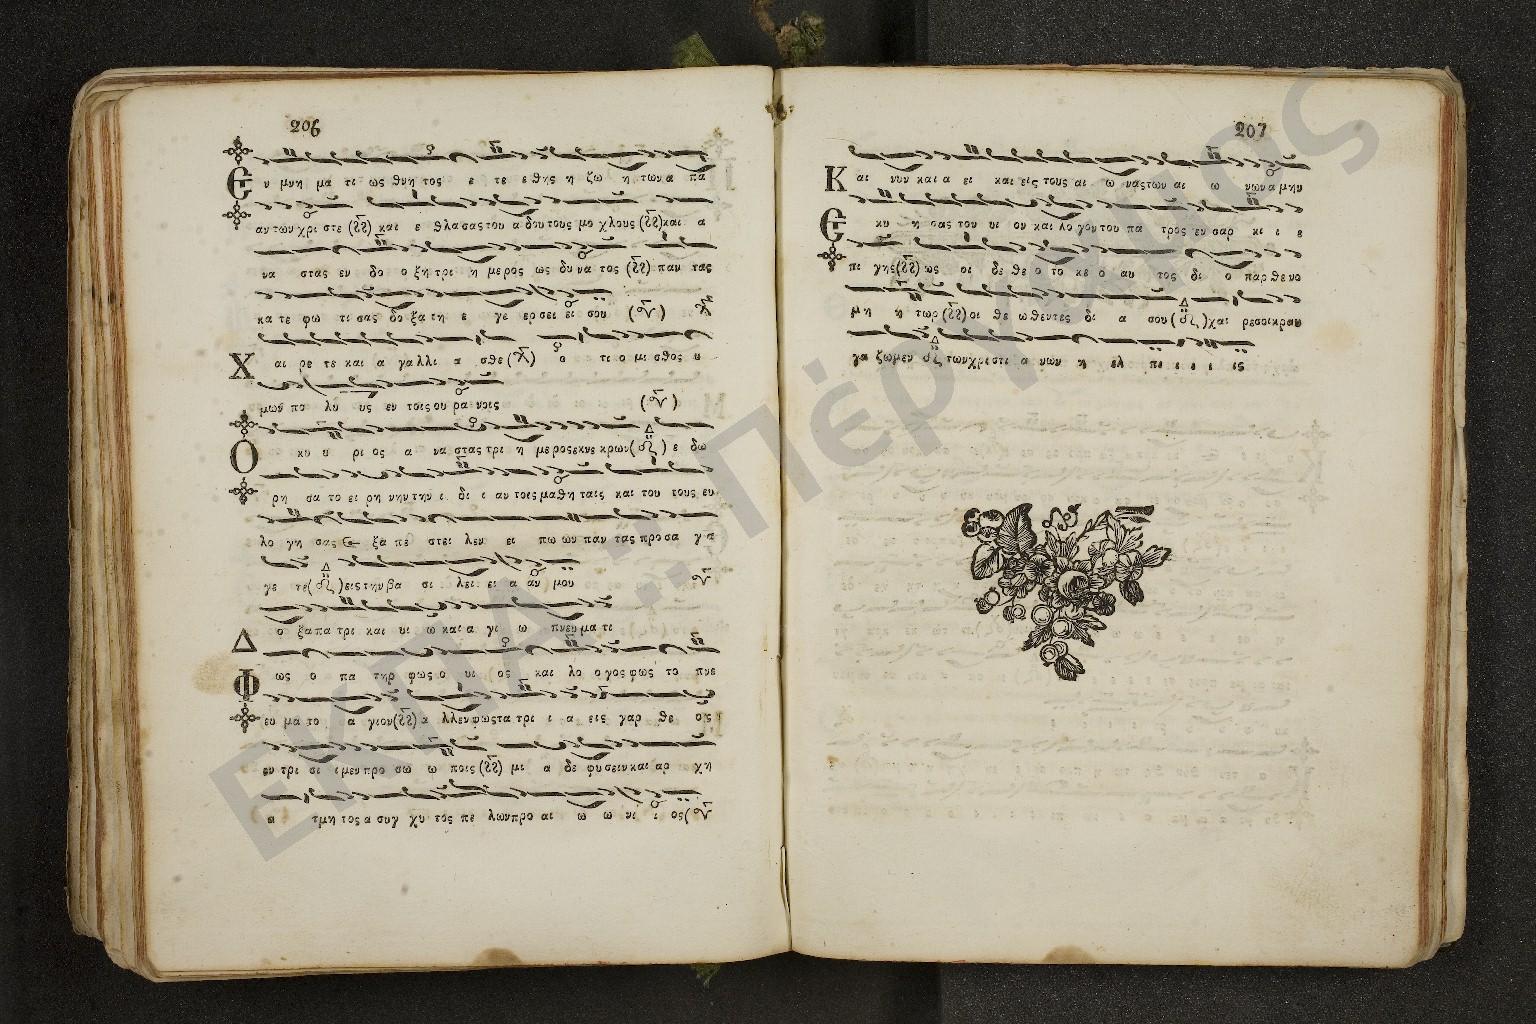 206
Εν μνη μα τι ως θνη τος ε τε ε θης η ζω η των α πα
αν των χρι στε και ε θλα σας του α δου τους μο χλους και α
να στας εν δο ο ξη τρι η μερος ως δυ να τος παν τας
κα τε φω τι σας δο ξα τη ε γε ερ σει ει σου
Χ αι ρε τε και α γα λλι α σθε ο τι ο μι σθος υ
μων πο λυ υς εν τοις ου ρα νοις
Ο κυ υ ρι ος α να στας τρι η μερος εκ νε κρων ε δω
ρη σα το ει ρη νην την ι δι ι αν τοις μα θη ταις και του τους ευ
λο γη σας ε ξα πε στει λεν ει πω ων παν τας προ σα γα
γε τε εις την βα σι λει ει α αν μου
Δ ο ξα πα τρι και υι ω και α γι ω πνευ μα τι
Φ ως ο πα τηρ φως ο υι ος και λο ο γος φως το πνε
ευ μα το α γιον α λλ εν φως τα τρι ι α εις γαρ θε ος
εν τρι σι ι μεν προ σω ω ποις μι α δε φυ σει και αρ χη
α τμη τος α συγ χυ τος πε λων προ αι ω ω νι ι ος
207
Κ αι νυν και α ει και εις τους αι ω νας των αι ω νων α μην
Ε κυ η σας τον υι ον και λο γον του πα τρος εν σαρ κι ι ε
πι γης ως οι δε θε ο το κε ο αυ τος δι ο παρ θε νο
μη η τωρ οι θε ω θεντες δι α σου χαι ρε σοι κραυ
γα ζωμεν των χρι στι α νων η ελ πι ι ι ι ις
ΕΚΠΑ::Πέργαμος